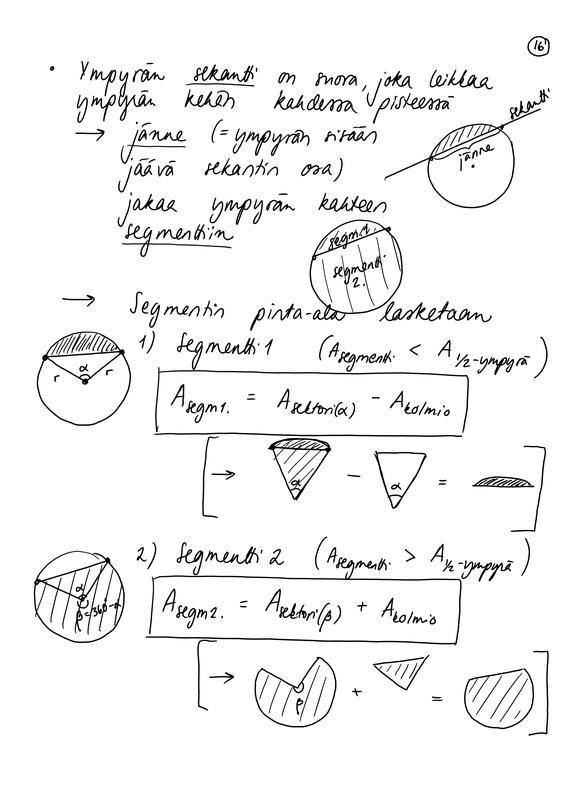 16
• Ympyrän sekantti on suora, joka leikkaa
ympyrän kehän kahdessa pisteessä
→ jänne (= ympyrän sisään
jäävä sekantin osa)
jakaa ympyrän kahteen
segmenttiin
sekantti
jänne
segm.1.
segmentti
2.
→ Segmentin pinta-ala lasketaan
1) Segmentti 1 (A segmentti < A 1/2-ympyrä)
α
r r
A segm1. = A sektori(α) - A kolmio
[→ α - α = ]
2) Segmentti 2 (A segmentti > A 1/2-ympyrä)
α
β=360-α
A segm2. = A sektori(β) + A kolmio
[→ β + = ]